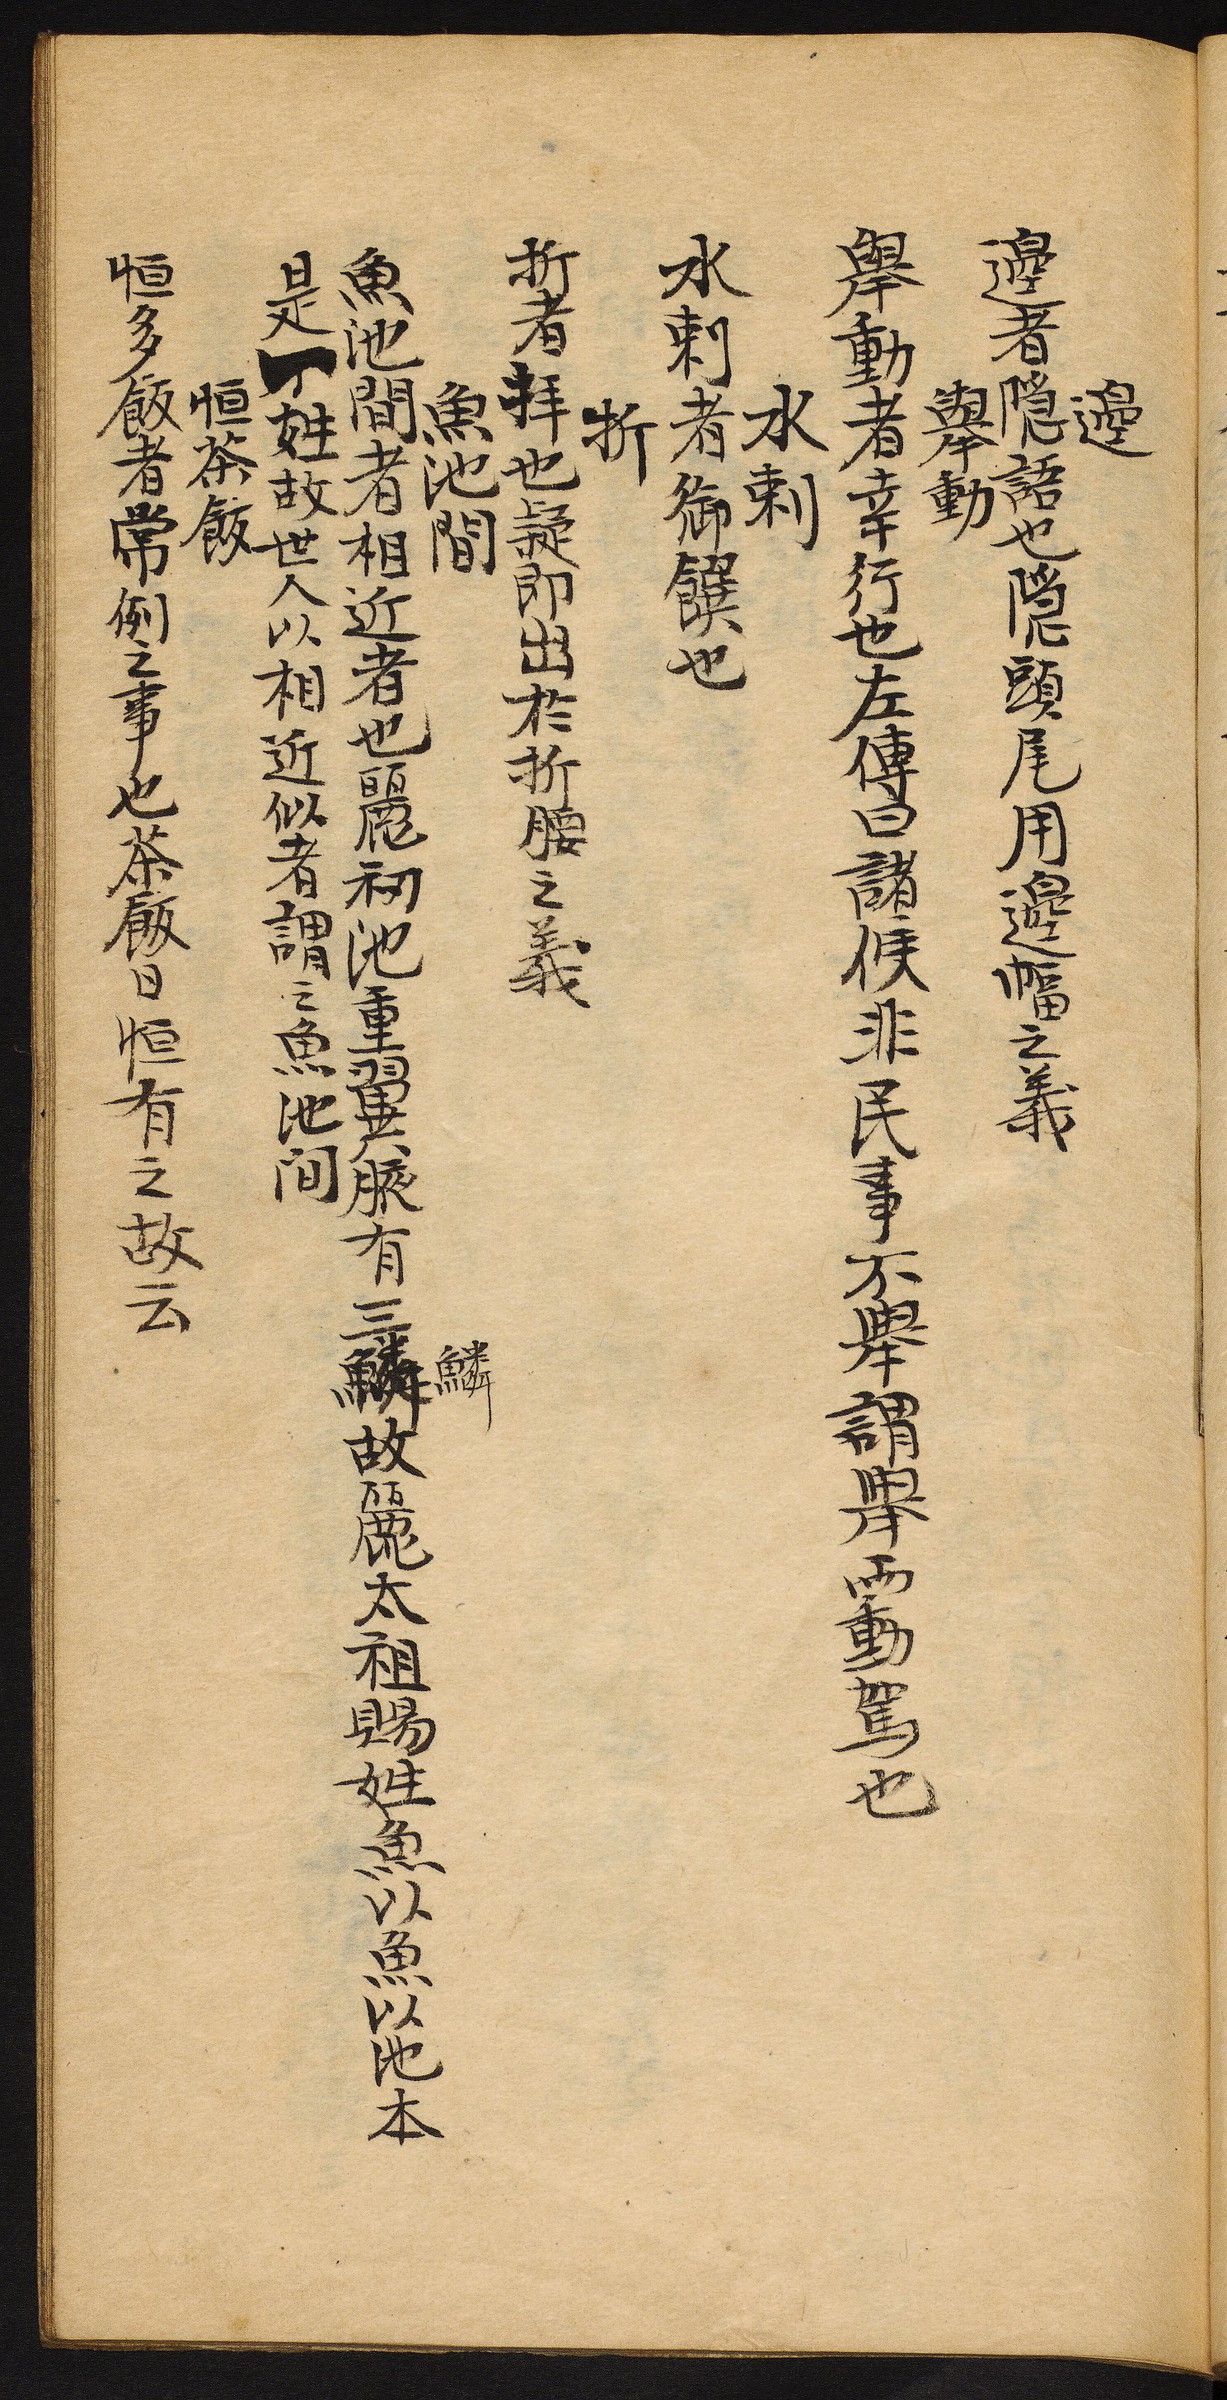 邊
邊者隱語也隱頭尾用邊幅之義
擧動
擧動者幸行也左傳曰諸侯非民事不擧謂擧而動駕也
水剌
水剌者御饌也
折
折者拜也疑即出於折腰之義
魚池間
魚池間者相近者也麗初池重翼腋有三鱗故麗太祖賜姓魚以魚以池本
鱗
是一姓故世人以相近似者謂之魚池间
恒茶飯
恒多飯者常例之事也茶飯日恒有之故云